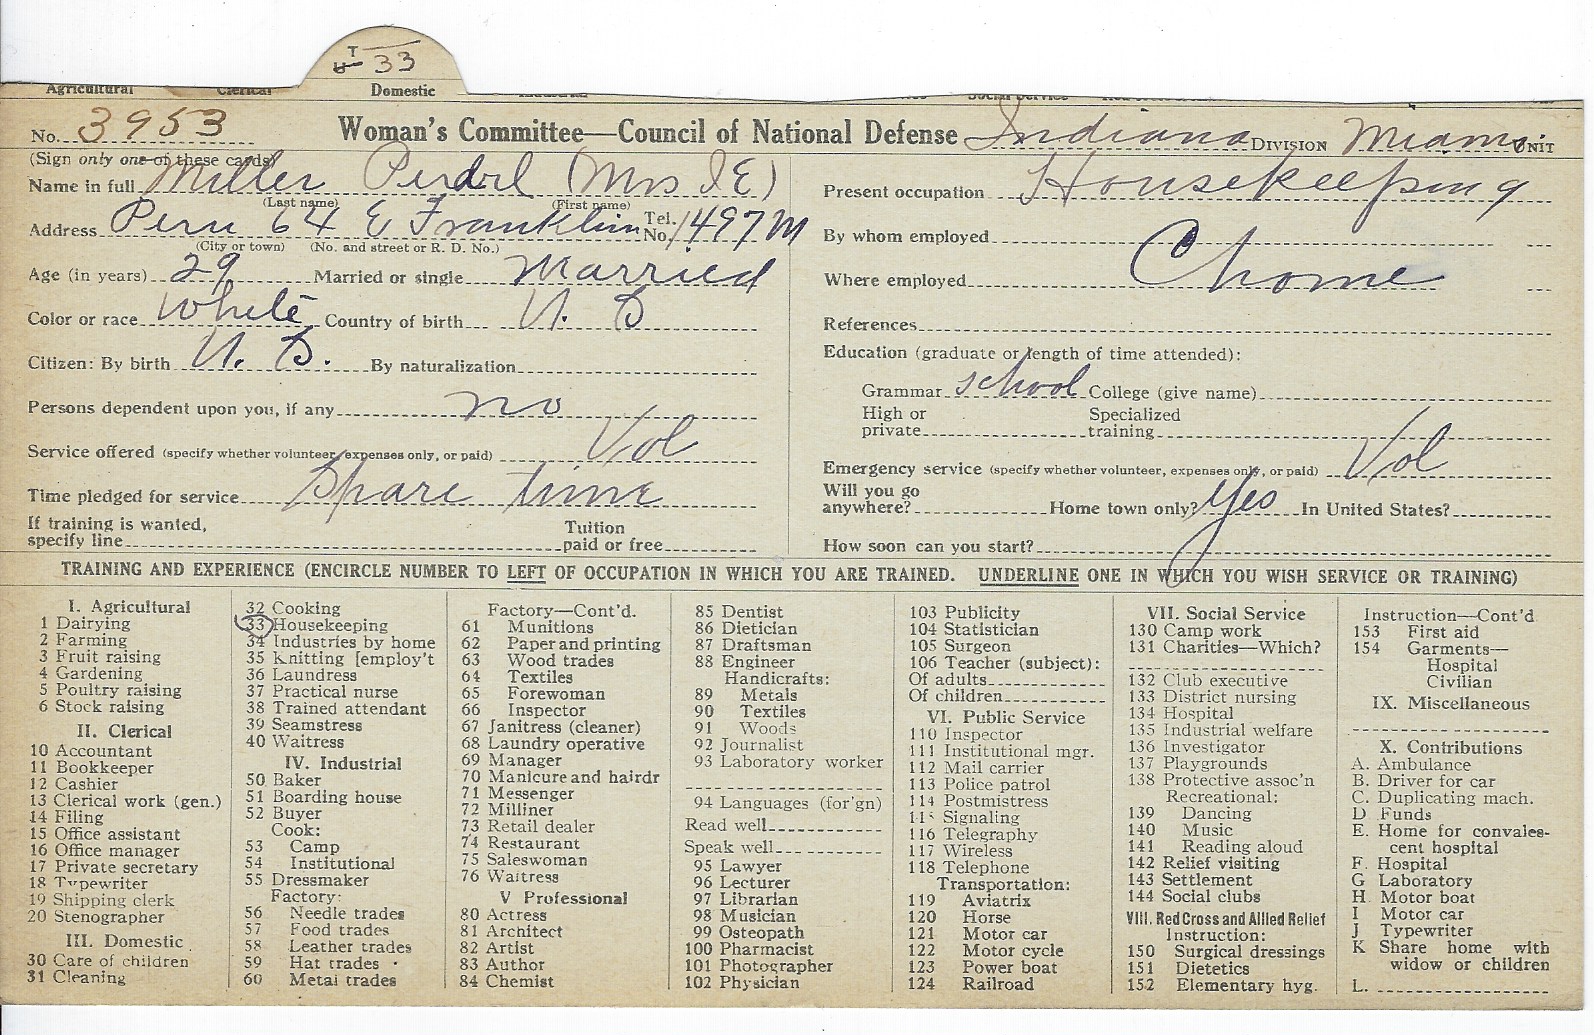 T
33
Agricultural Clerical Domestic Industrial Social Service
No. 3953 Woman's Committee—Council of National Defense Indiana DIVISION Miami UNIT
(Sign only one of these cards)
Name in full Miller (Mrs I E)
(Last name) (First name)
Address Peru 64 E Franklin Tel. No. 1497 M
(City or town) (No. and street or R. D. No.)
Age (in years) 29 Married or single Married
Color or race White Country of birth U. S
Citizen: By birth U. S. By naturalization
Persons dependent upon you, if any no
Service offered (specify whether volunteer, expenses only, or paid) Vol
Time pledged for service Spare time
If training is wanted, specify line Tuition paid or free
Present occupation Housekeeping
By whom employed
Where employed home
References
Education (graduate or length of time attended):
Grammar school College (give name)
High or private Specialized training
Emergency service (specify whether volunteer, expenses only, or paid) Vol
Will you go anywhere? Home town only? Yes In United States?
How soon can you start?
TRAINING AND EXPERIENCE (ENCIRCLE NUMBER TO LEFT OF OCCUPATION IN WHICH YOU ARE TRAINED. UNDERLINE ONE IN WHICH YOU WISH SERVICE OR TRAINING)
I. Agricultural
1 Dairying
2 Farming
3 Fruit raising
4 Gardening
5 Poultry raising
6 Stock raising
II. Clerical
10 Accountant
11 Bookkeeper
12 Cashier
13 Clerical work (gen.)
14 Filing
15 Office assistant
16 Office manager
17 Private secretary
18 Typewriter
19 Shipping clerk
20 Stenographer
III. Domestic
30 Care of children
31 Cleaning
32 Cooking
33 Housekeeping
34 Industries by home
35 Knitting [employ't
36 Laundress
37 Practical nurse
38 Trained attendant
39 Seamstress
40 Waitress
IV. Industrial
50 Baker
51 Boarding house
52 Buyer
Cook:
53 Camp
54 Institutional
55 Dressmaker
Factory:
56 Needle trades
57 Food trades
58 Leather trades
59 Hat trades
60 Metal trades
Factory—Cont'd.
61 Munitions
62 Paper and printing
63 Wood trades
64 Textiles
65 Forewoman
66 Inspector
67 Janitress (cleaner)
68 Laundry operative
69 Manager
70 Manicure and hairdr
71 Messenger
72 Milliner
73 Retail dealer
74 Restaurant
75 Saleswoman
76 Waitress
V Professional
80 Actress
81 Architect
82 Artist
83 Author
84 Chemist
85 Dentist
86 Dietician
87 Draftsman
88 Engineer
Handicrafts:
89 Metals
90 Textiles
91 Woods
92 Journalist
93 Laboratory worker
94 Languages (for'gn)
Read well
Speak well
95 Lawyer
96 Lecturer
97 Librarian
98 Musician
99 Osteopath
100 Pharmacist
101 Photographer
102 Physician
103 Publicity
104 Statistician
105 Surgeon
106 Teacher (subject):
Of adults
Of children
VI. Public Service
110 Inspector
111 Institutional mgr.
112 Mail carrier
113 Police patrol
114 Postmistress
115 Signaling
116 Telegraphy
117 Wireless
118 Telephone
Transportation:
119 Aviatrix
120 Horse
121 Motor car
122 Motor cycle
123 Power boat
124 Railroad
VII. Social Service
130 Camp work
131 Charities—Which?
132 Club executive
133 District nursing
134 Hospital
135 Industrial welfare
136 Investigator
137 Playgrounds
138 Protective assoc'n
Recreational:
139 Dancing
140 Music
141 Reading aloud
142 Relief visiting
143 Settlement
144 Social clubs
VIII. Red Cross and Allied Relief
Instruction:
150 Surgical dressings
151 Dietetics
152 Elementary hyg.
Instruction—Cont'd
153 First aid
154 Garments—
Hospital
Civilian
IX. Miscellaneous
X. Contributions
A. Ambulance
B. Driver for car
C. Duplicating mach.
D Funds
E. Home for convales-
cent hospital
F. Hospital
G Laboratory
H. Motor boat
I Motor car
J Typewriter
K Share home with
widow or children
L.